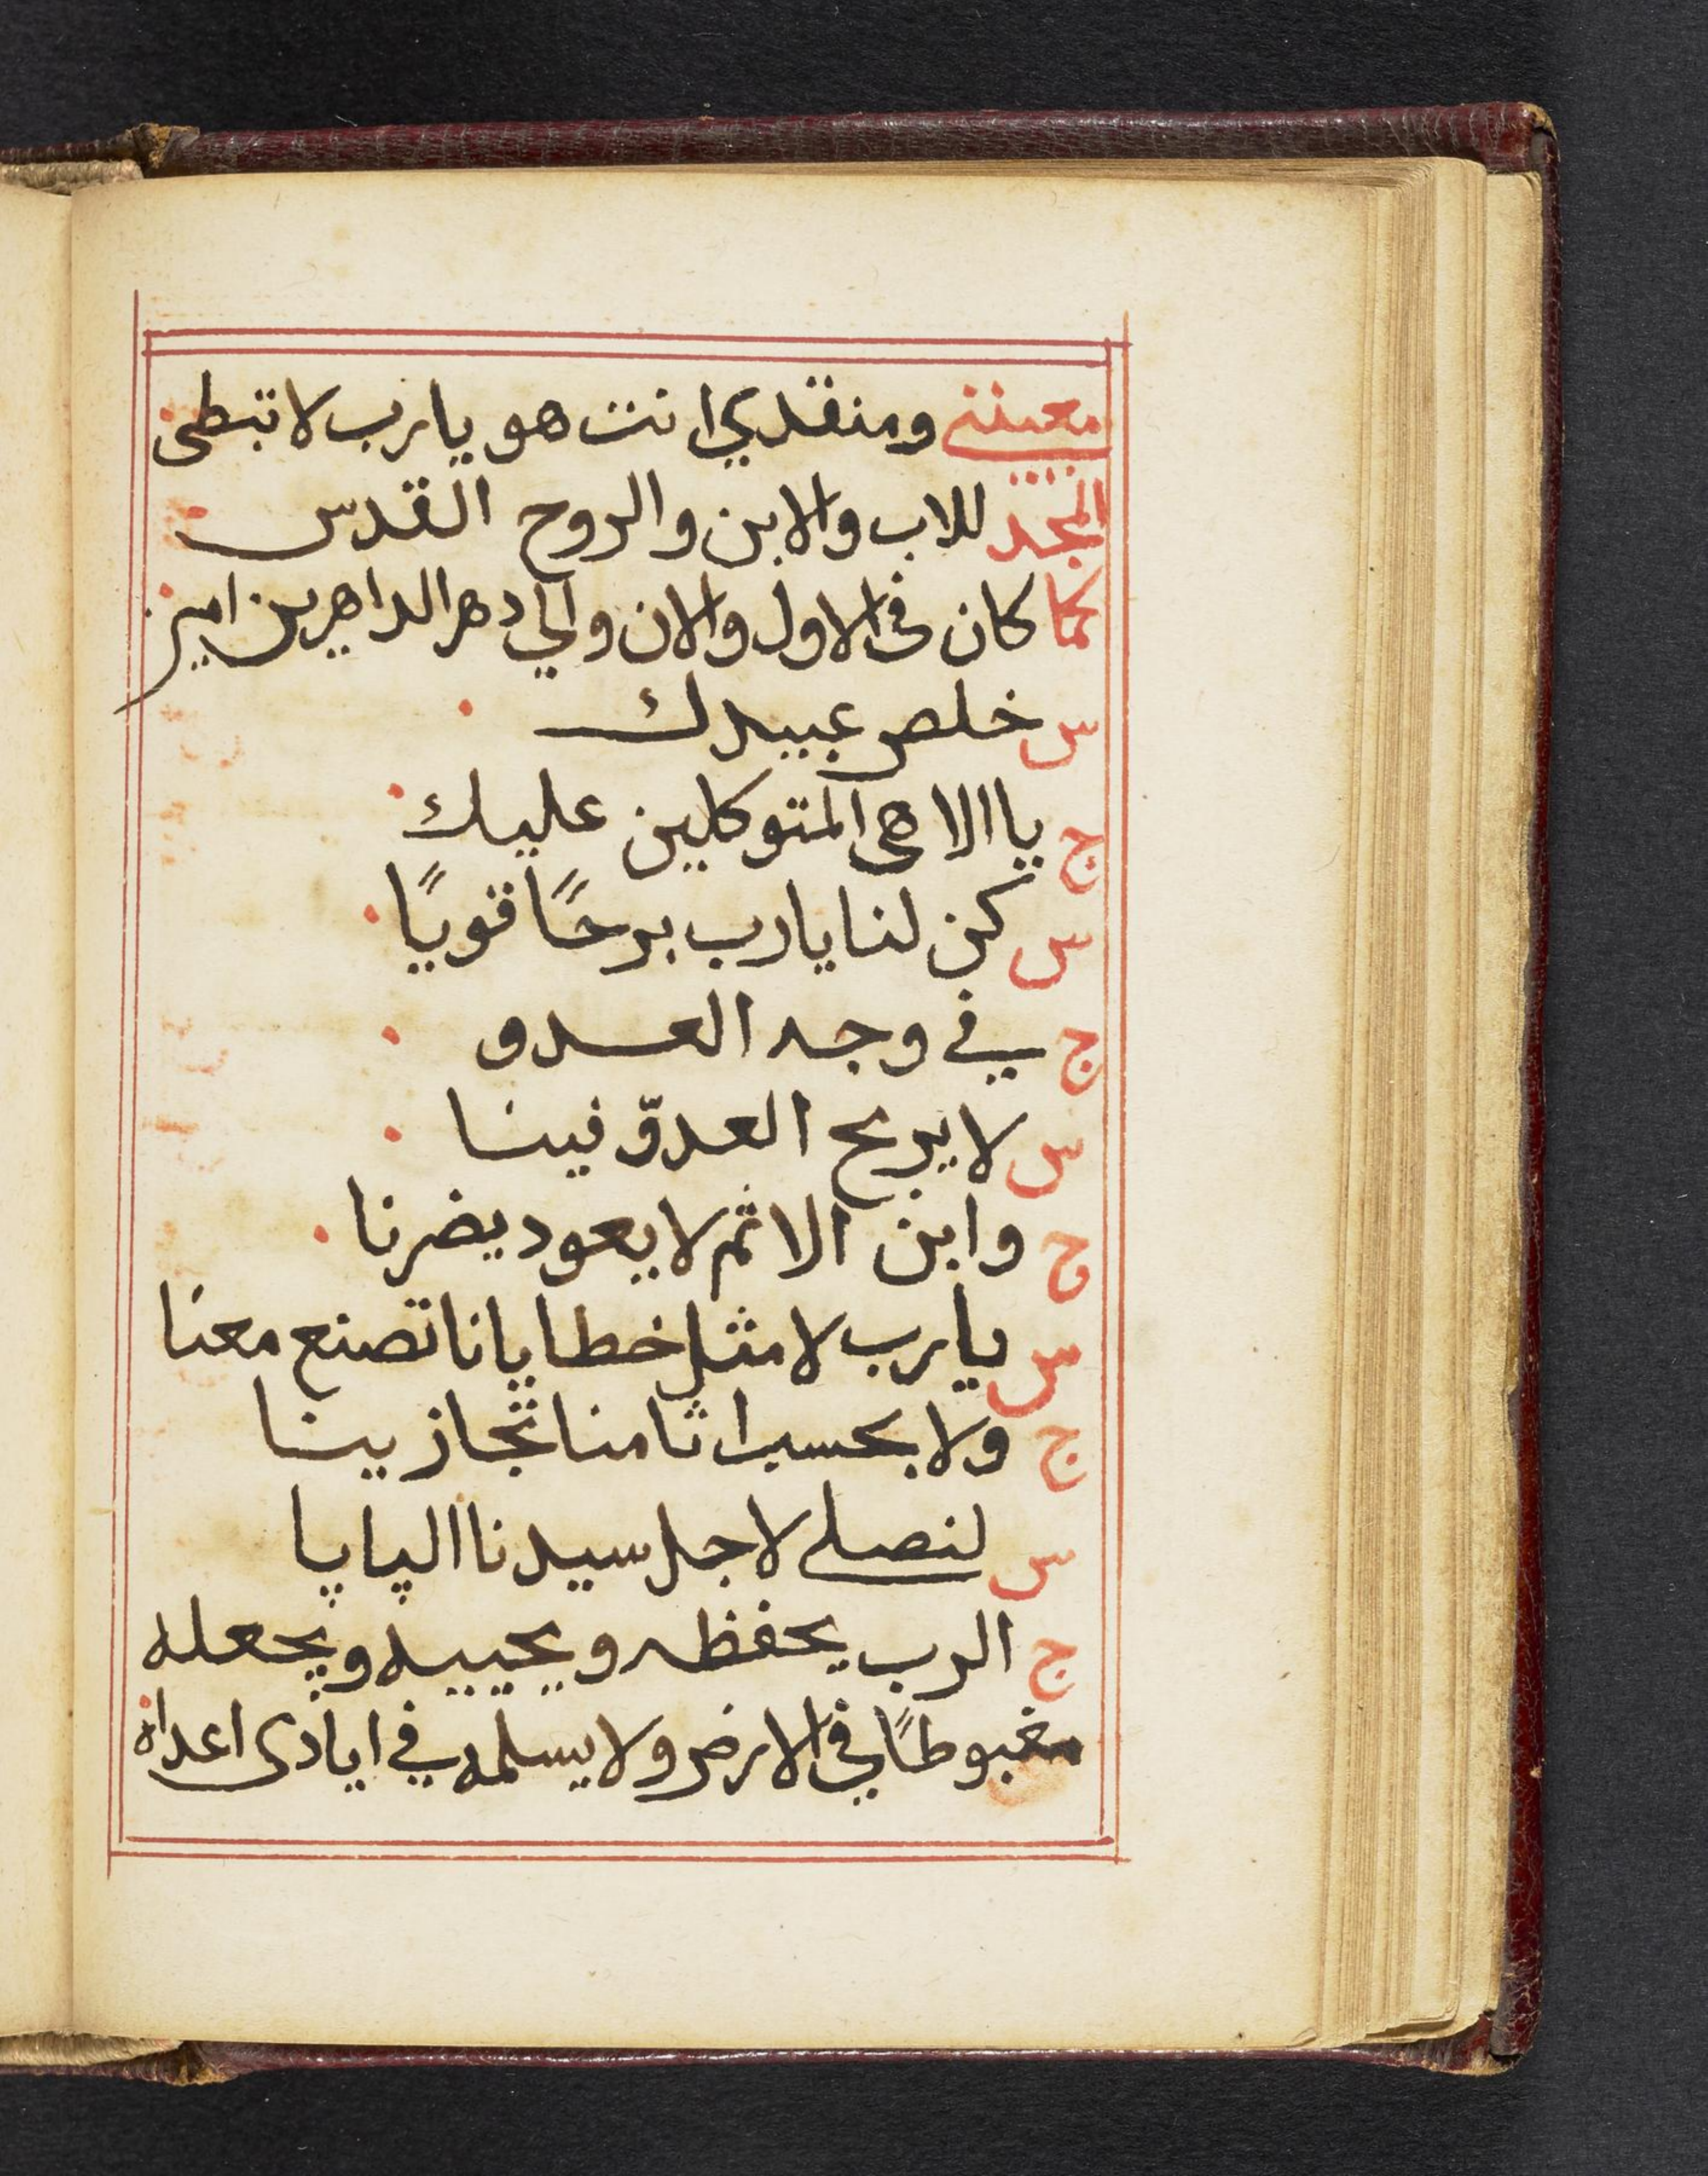 معيننى ومنقدي انت هو يارب لا تبطى
المجد للاب والابن والروح القدس
كما كان فى الاول والان والي دهر الداهرين امين
س خلص عبيدك
ج يا الاهى المتوكلين عليك
س كن لنا يا رب برجًا قويًا
ج في وجه العدو
س لا يربح العدوّ فينا
ج وابن الاثم لا يعود يضرنا
س يا رب لا مثل خطايانا تصنع معنا
ج ولا بحسب اثامنا تجازينا
س لنصلى لاجل سيدنا الپاپا
ج الرب يحفظه ويحييه ويجعله
مغبوطًا في الارض ولا يسلمه في ايادى اعداه